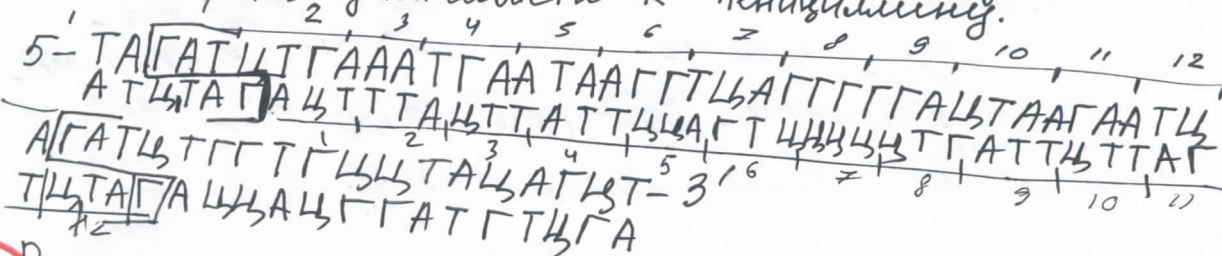 к пенициллину.
1 2 3 4 5 6 7 8 9 10 11 12
5-ТАГАТЦТГАААТГААТААГГТЦАГГГГГАЦТААГААТЦ
АТЦТАГАЦТТТАЦТТАТТЦЦАГТЦЦЦЦЦТГАТТЦТТАГ
1 2 3 4 5 6 7 8 9 10 11
АГАТЦТГГТГЦЦТАЦАГЦТ-3'
ТЦТАГАЦЦАЦГГАТГТЦГА
12